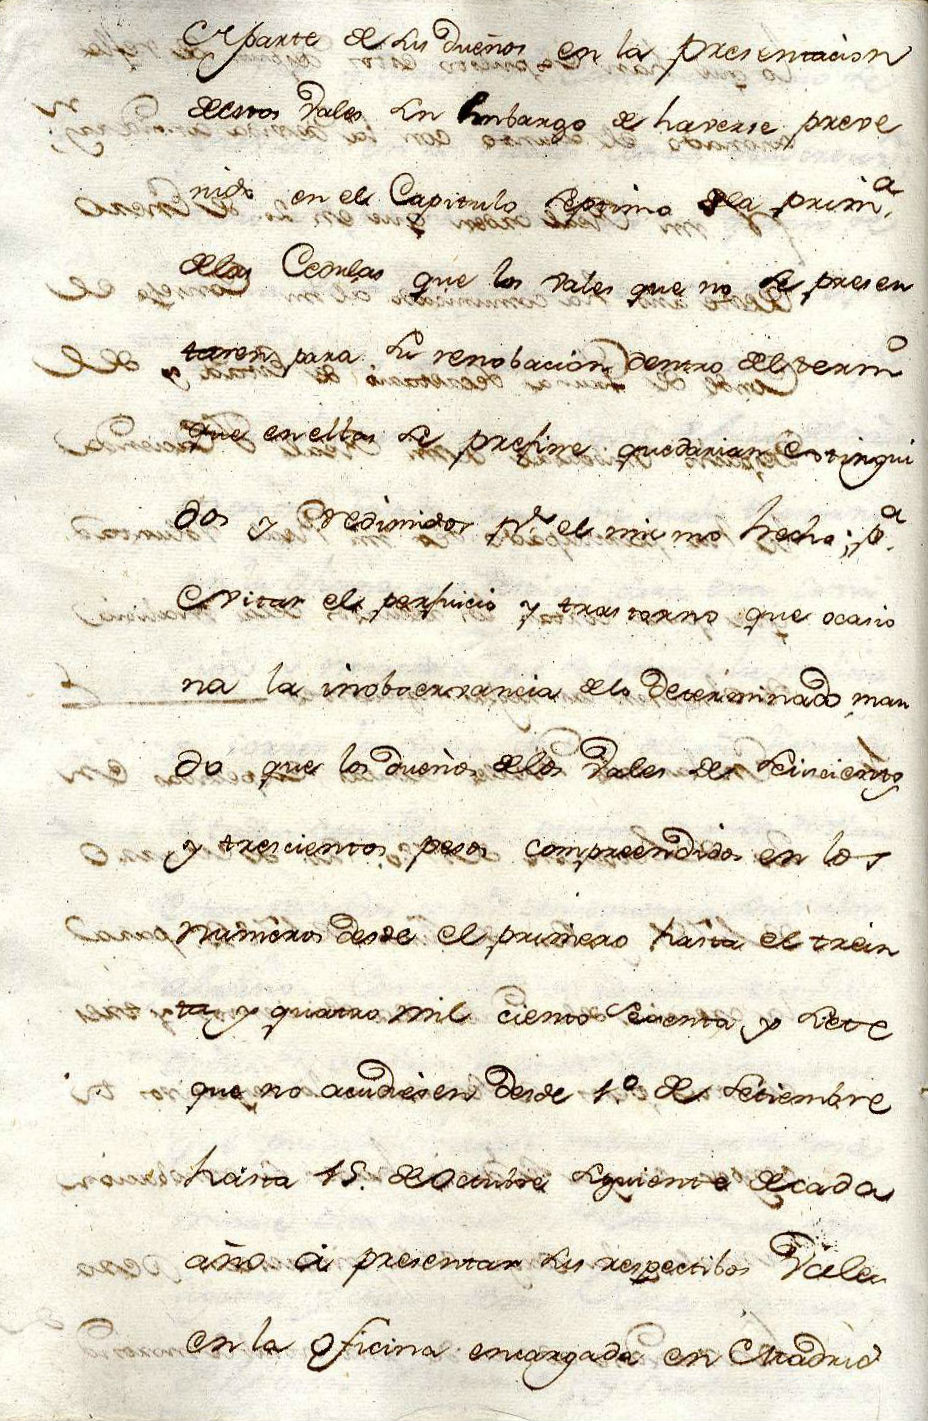 parte de sus dueños en la presentacion
de estos Vales sin embargo de haverse preve
nido en el Capitulo septimo de la prim.a
de las Cedulas que los Vales que no se presen
taren para su renobacion dentro del term.o
que en ellas se prefine quedarian extingui
dos y redimidos p.r el mismo hecho; p.a
evitar el perjuicio y trastorno que ocasio
na la inobservancia de lo determinado man
do que los dueños de los Vales de seiscientos
y trescientos pesos compreendidos en los
numeros desde el primero hasta el trein
ta y quatro mil ciento sesenta y siete
que no acudiesen desde 1.o de Setiembre
hasta 15. de Octubre siguiente de cada
año a presentar sus respectibos Vales
en la oficina encargada en Madrid